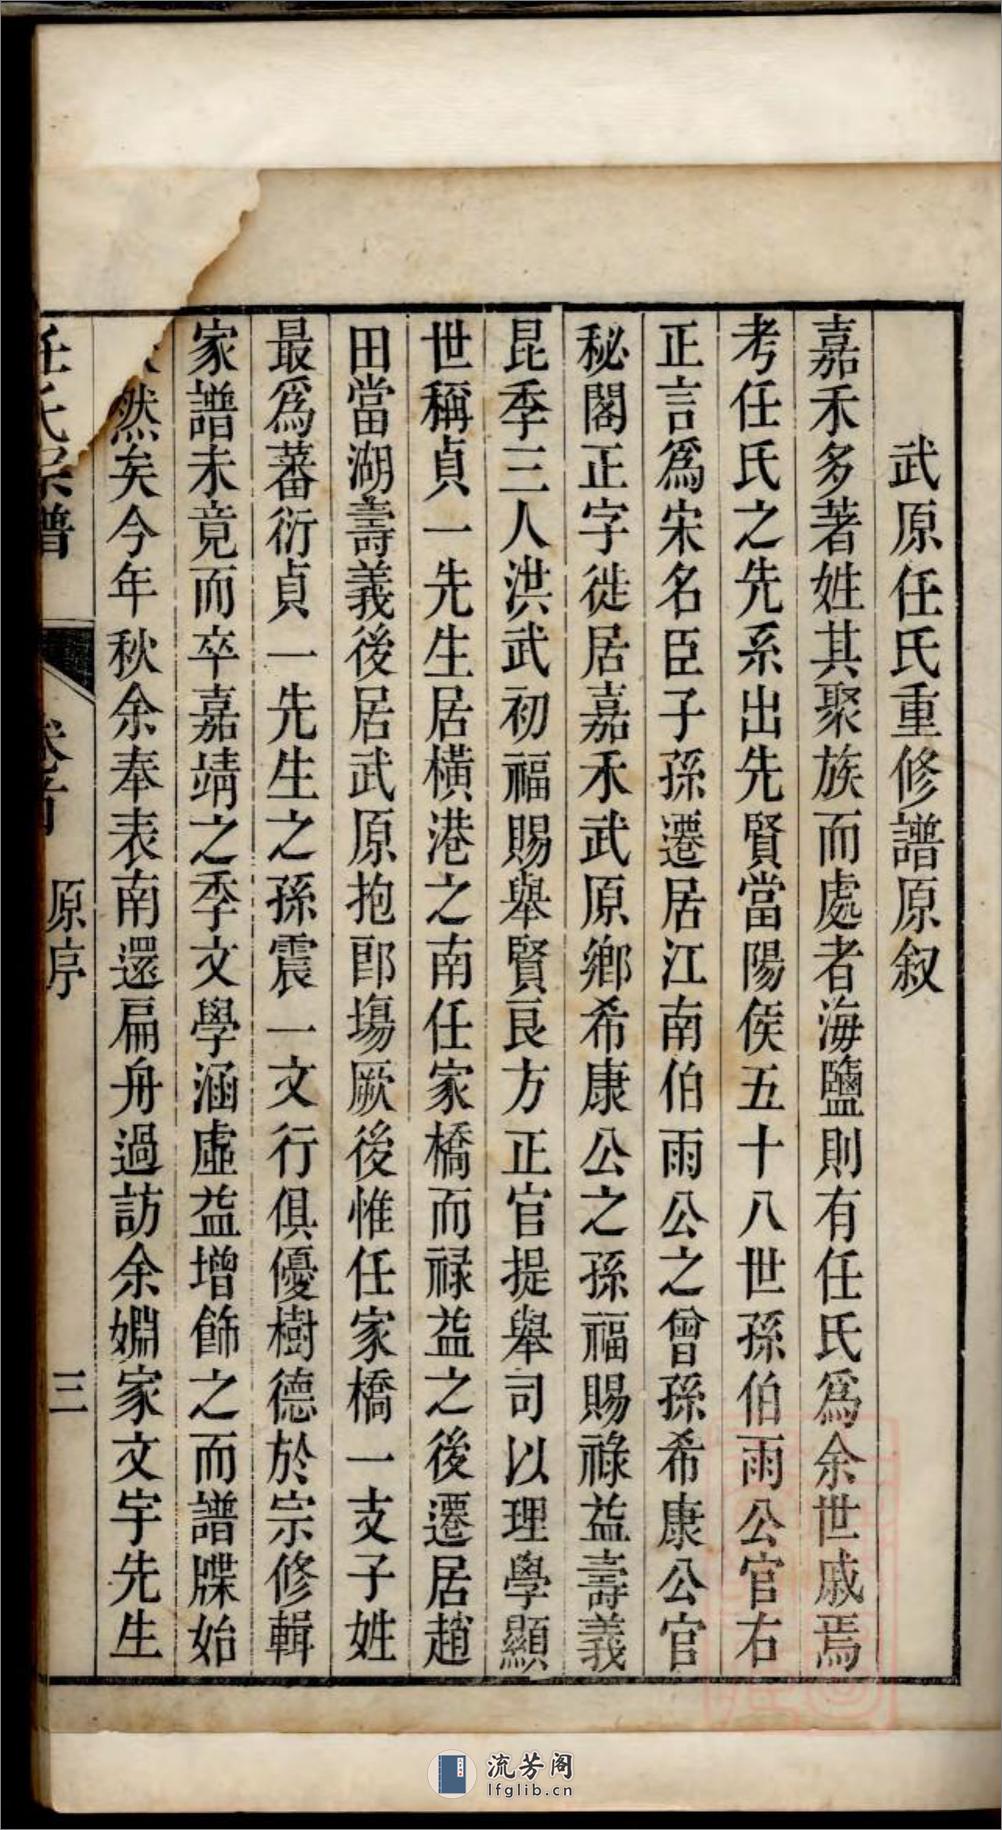 武原任氏重修譜原叙
嘉禾多著姓其聚族而處者海鹽則有任氏爲余世戚焉
考任氏之先系出先賢當陽侯五十八世孫伯雨公官右
正言爲宋名臣子孫遷居江南伯雨公之曾孫希康公官
秘閣正字徙居嘉禾武原鄉希康公之孫福賜祿益壽義
昆季三人洪武初福賜舉賢良方正官提舉司以理學顯
世稱貞一先生居橫港之南任家橋而祿益之後遷居趙
田當湖壽義後居武原抱郎塲厥後惟任家橋一支子姓
最爲蕃衍貞一先生之孫震一文行俱優樹德於宗修輯
家譜未竟而卒嘉靖之季文學涵虛益增飾之而譜牒始
然矣今年秋余奉表南還扁舟過訪余婣家文宇先生
任氏宗譜 卷首 原序 三
流芳阁
lfglib.cn